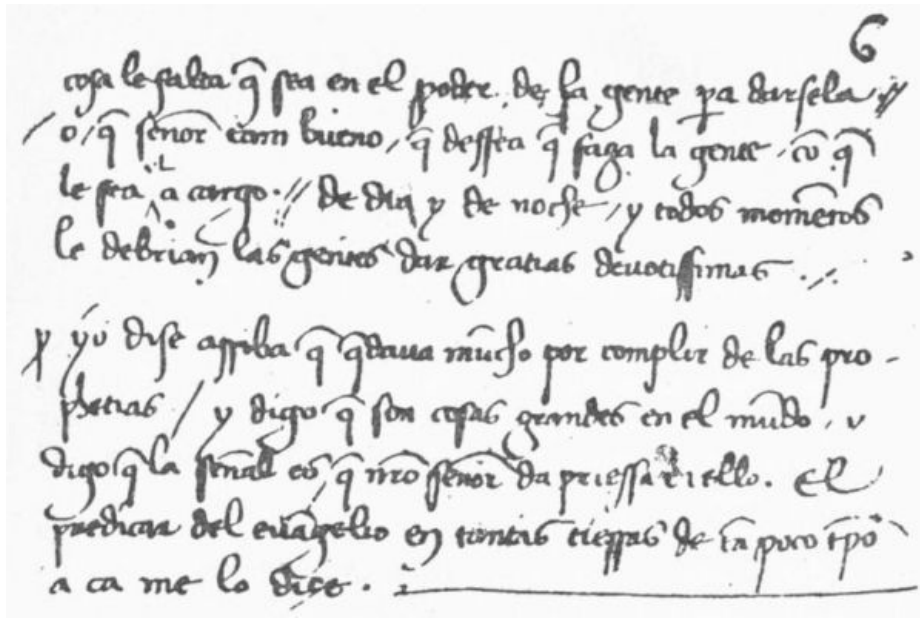 6
cosa le falta q̃ sea en el poder de la gente pa darsela //
/ o / q̃ señor tam bueno / q̃ dessea q̃ faga la gente / cõ q̃
le sea ^L a cargo. // de dia y de noche / y todos momẽtos
le debrian las gentes dar gratias devotissimas . //
y yo dise arriba q̃ q̃dava mucho por complir de las pro-
phetias / y digo q̃ son cosas grandes en el mũdo / y
digo q̃ la señal es q̃ nr̃o señor da priessa ello. El
predicar del euãgelio en tantas tierras de tã poco tp̃o
a ca me lo dice .